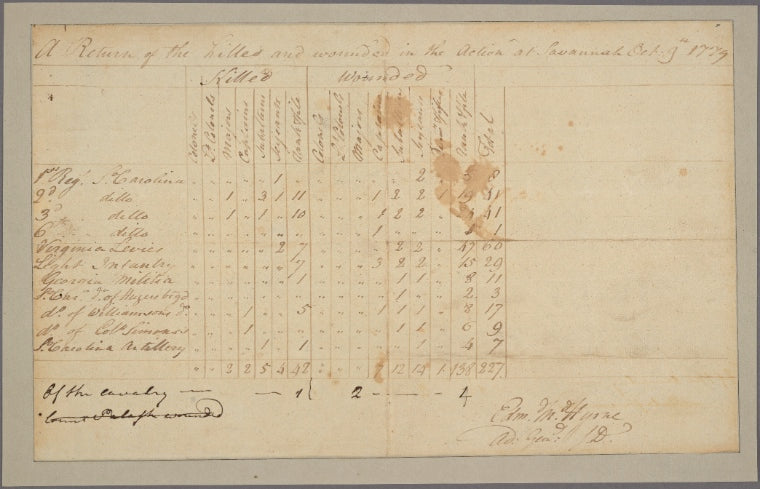 A Return of the Killed and wounded in the Action at Savannah Oct. 9th 1779
Killed Wounded
Colonels Lt Colonels Majors Captains Subalterns Serjeants Rank & file Colonels Lt Colonels Majors Captains Subalterns Serjeants Rank & file Total
1st Regt. So. Carolina 1 2 5 8
2d. ditto 1 3 1 11 1 2 2 1 19 41
3d ditto 1 1 10 1 2 2 41
6 ditto 1 1
Virginia Levies 2 7 2 2 47 60
Light Infantry 7 3 2 2 15 29
Georgia Militia 1 1 1 8 11
1 2 3
do. of Williamsons do. 1 5 1 1 1 8 17
do. of Colo. Simmons 1 1 1 6 9
So. Carolina Artillery 1 1 1 4 7
2 2 5 4 42 7 12 14 1 138 227
Of the cavalry — 1 2 4
Count Pulaski wounded
Edm. M. Hyrne
Ad. Genl. S D.